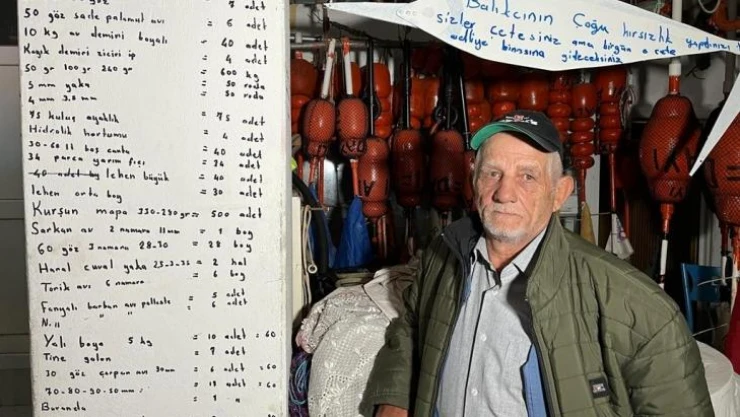 50 göz sarle palamut avı = 6 adet
10 kg av demiri boyalı = 40 adet
Kayık demiri zinciri ip = 4 adet
50 gr 100 gr 240 gr = 600 kg
5 mm yaka = 50 roda
4 mm 3,5 mm = 50 roda
75 kuluç ayaklık = 75 adet
Hidrolik hortumu = 4 adet
30-60 lt boş canta = 40 adet
34 parca yarım fıçı = 34 adet
40 adet boy lehen büyük = 40 adet
lehen orta boy = 30 adet
Kurşun mapa 350-290 gr = 500 adet
Sarkan av 2 namara 11 mm = 1 boy
60 göz 3 namara 28-30 = 28 boy
Hanal cuval yaka 25-3-35 = 2 hal
Torik avı 6 namara = 6 boy
Fanyalı barkan avı = 5 adet
N.11 " " = 6 adet
Yalı boya 5 kg = 10 adet = 60
Tine galon = 7 adet
30 göz çarpan avı 30 mm = 6 adet = 60
70-80-90-50 mm = 19 adet = 60
Buranda = 1 "
Balıkcının Çoğu hırsızlık
sizler cetesiniz ama birgün o cete
adliye binasına gideceksiniz